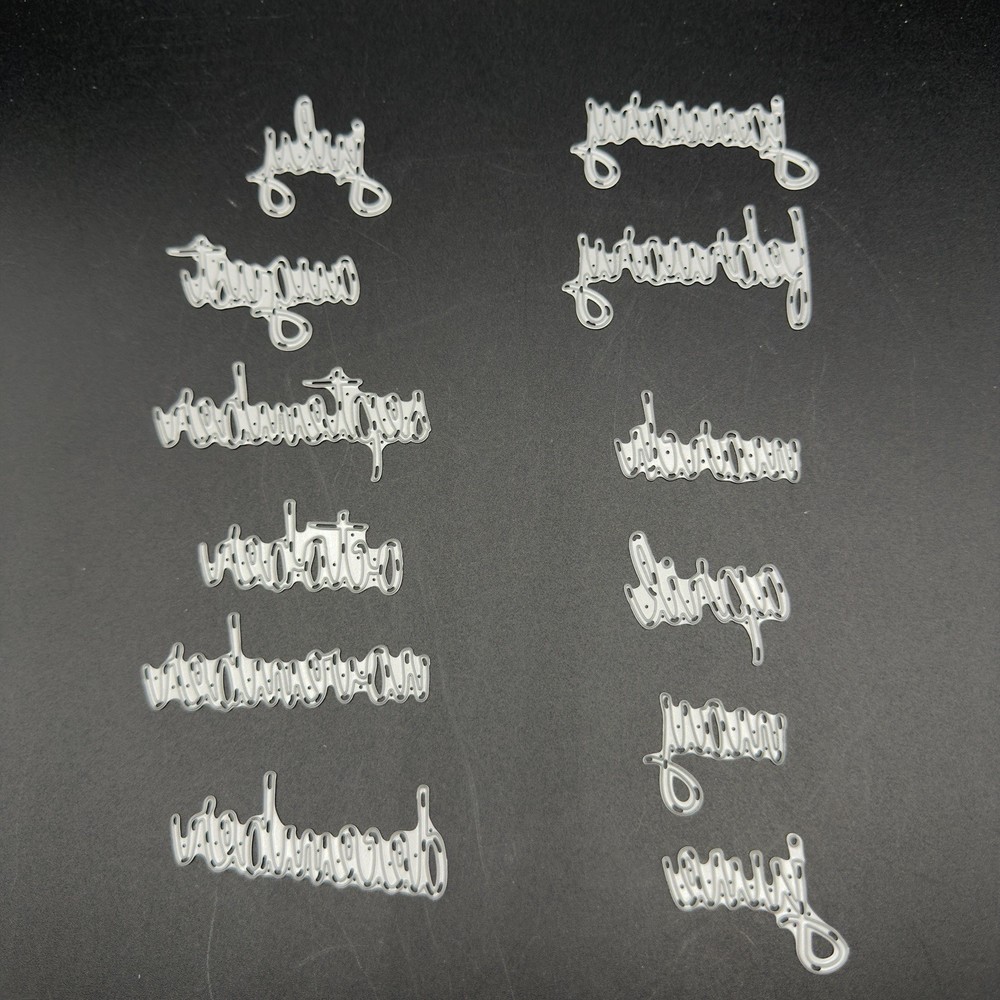 january
february
march
april
may
june
july
august
september
october
november
december